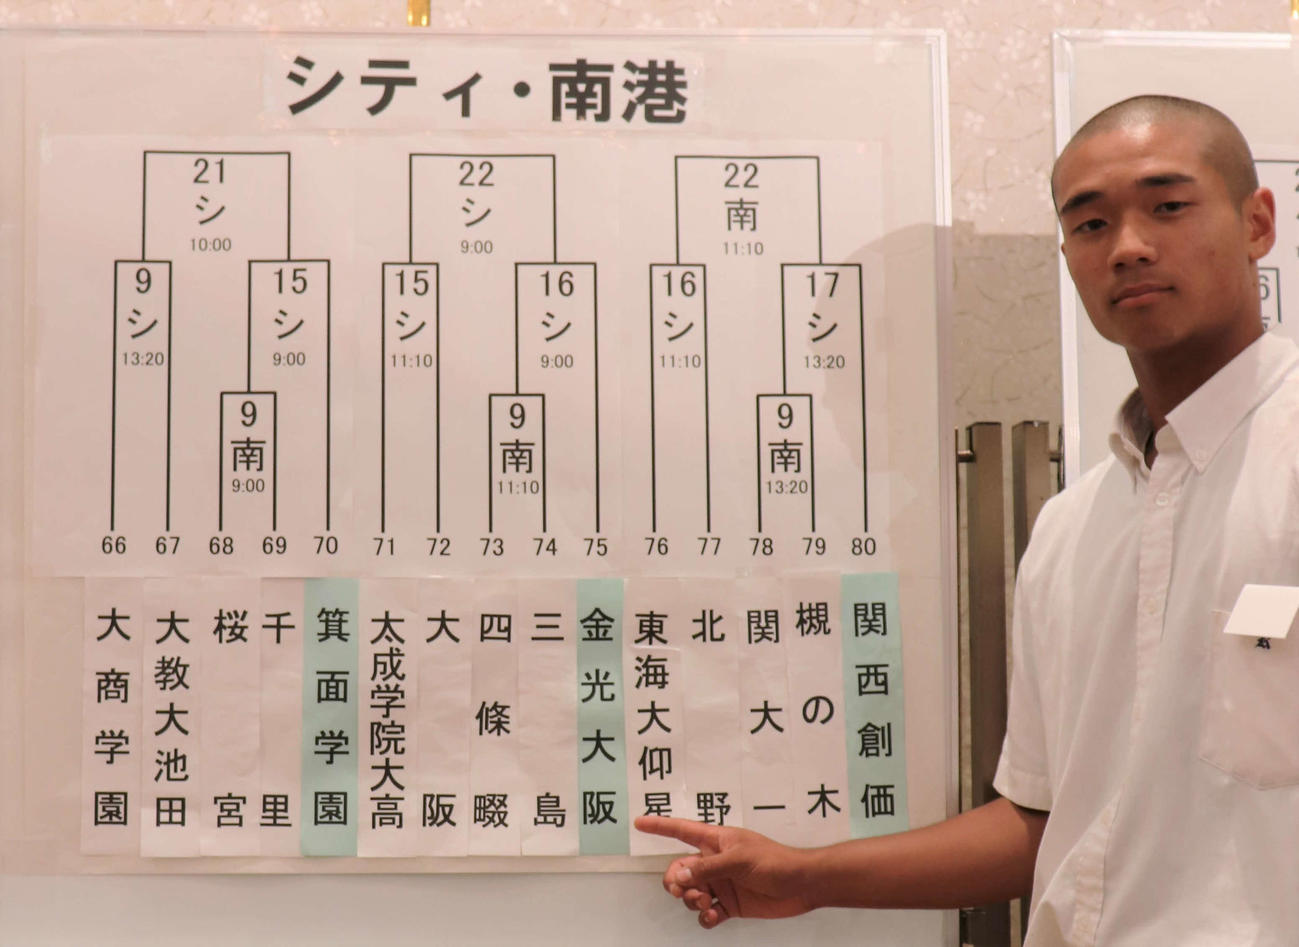 シティ・南港
21
シ
10:00
22
シ
9:00
22
南
11:10
9
シ
13:20
15
シ
9:00
15
シ
11:10
16
シ
9:00
16
シ
11:10
17
シ
13:20
9
南
9:00
9
南
11:10
9
南
13:20
66 67 68 69 70 71 72 73 74 75 76 77 78 79 80
大商学園
大教大池田
桜宮
千里
箕面学園
太成学院大高
大阪
四條畷
三島
金光大阪
東海大仰星
北野
関大一
槻の木
関西創価